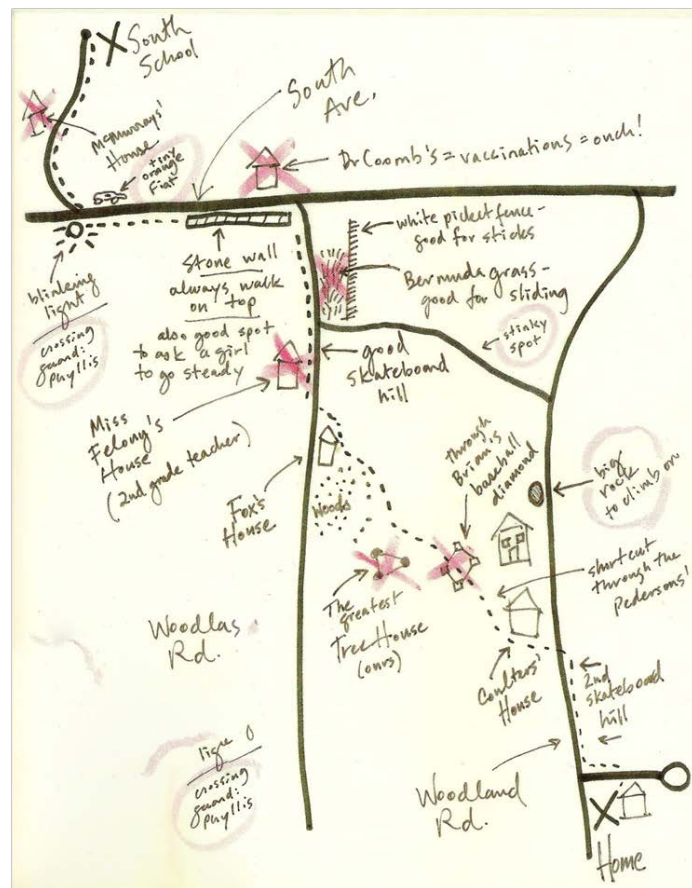 South
School
South
Ave.
McMurrays'
House
tiny
orange
Fiat
Dr Coomb's = vaccinations = ouch!
white picket fence-
good for sticks
Bermuda grass-
good for sliding
stinky
spot
blinking
light
crossing
guard:
phyllis
Stone wall
always walk
on top
also good spot
to ask a girl
to go steady
good
skateboard
hill
Miss
Felony's
House
(2nd grade teacher)
Fox's
House
Woods
through
Brian's
baseball
diamond
big
rock
to climb on
shortcut
through the
Pedersons'
The
greatest
Tree House
(ours)
Coulters'
House
2nd
skateboard
hill
Woodlas
Rd.
crossing
guard:
phyllis
Woodland
Rd.
Home